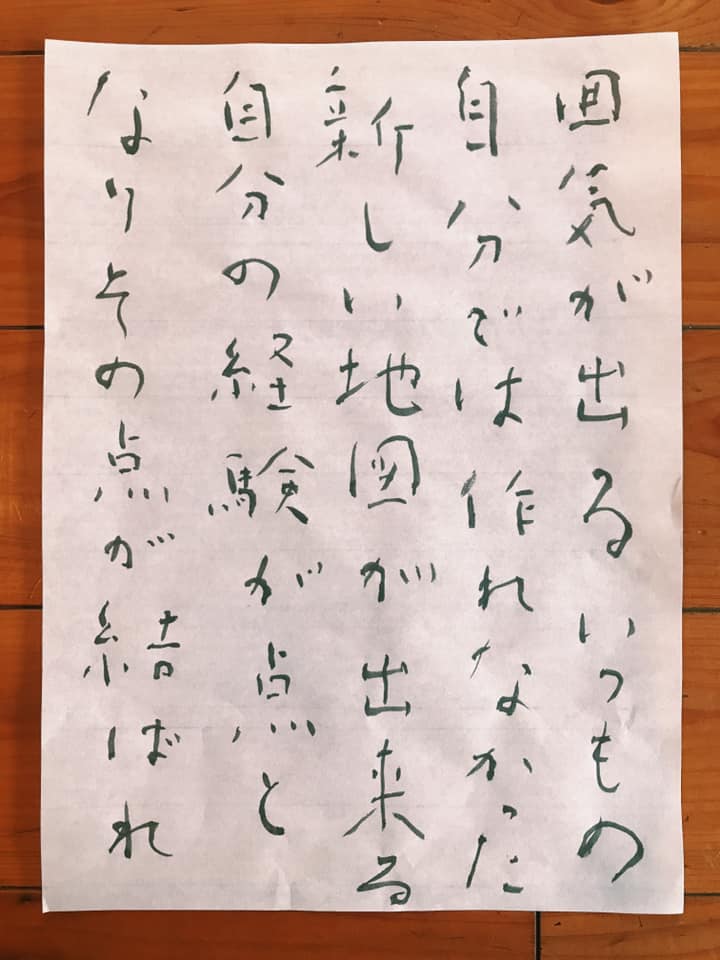 囲気が出るいつもの
自分では作れなかった
新しい地図が出来る
自分の経験が点と
なりその点が結ばれ